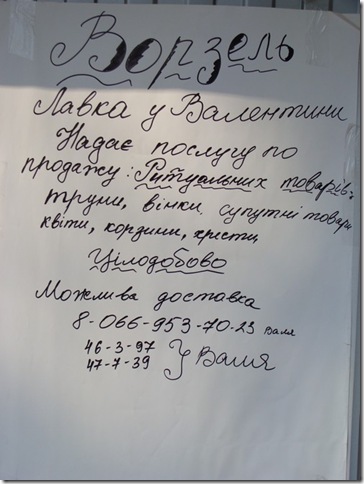 Ворзель
Лавка у Валентини
Надає послугу по
продажу: Ритуальних товарів:
труни, вінки, супутні товари
квіти, корзини, хрести
Цілодобово
Можлива доставка
8-066-953-70-23 Валя
46-3-97
47-7-39 } Валя